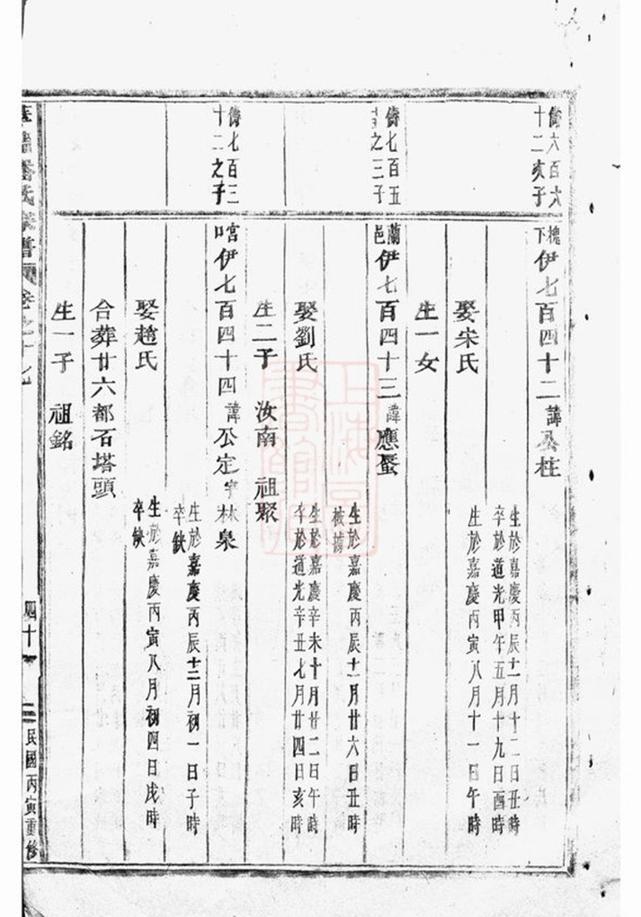 儔六百六
十二亥子
槐下
伊七百四十二諱公柱
生於嘉慶丙辰十二月十二日丑時
卒於道光甲午五月十九日酉時
娶宋氏
生於嘉慶丙寅八月十一日午時
生一女
儔七百五
之三子
蘭邑
伊七百四十三諱應蜑
生於嘉慶丙辰十一月廿六日丑時
被擄
娶劉氏
生於嘉慶辛未十月廿二日午時
卒於道光辛丑七月廿四日亥時
生二子 汝南 祖聚
儔七百三
十二之子
伊七百四十四諱公定字林泉
生於嘉慶丙辰十二月初一日子時
卒缺
娶趙氏
生於嘉慶丙寅八月初四日戌時
卒缺
合葬廿六都石塔頭
生一子 祖銘
氏
譜
卷之十九
四十
民國丙寅重修
上海圖書館藏